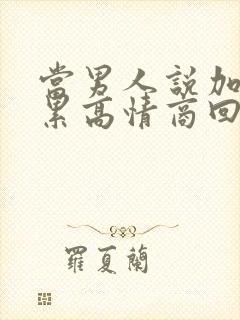 當男人説加
累高情商回
羅夏蘭